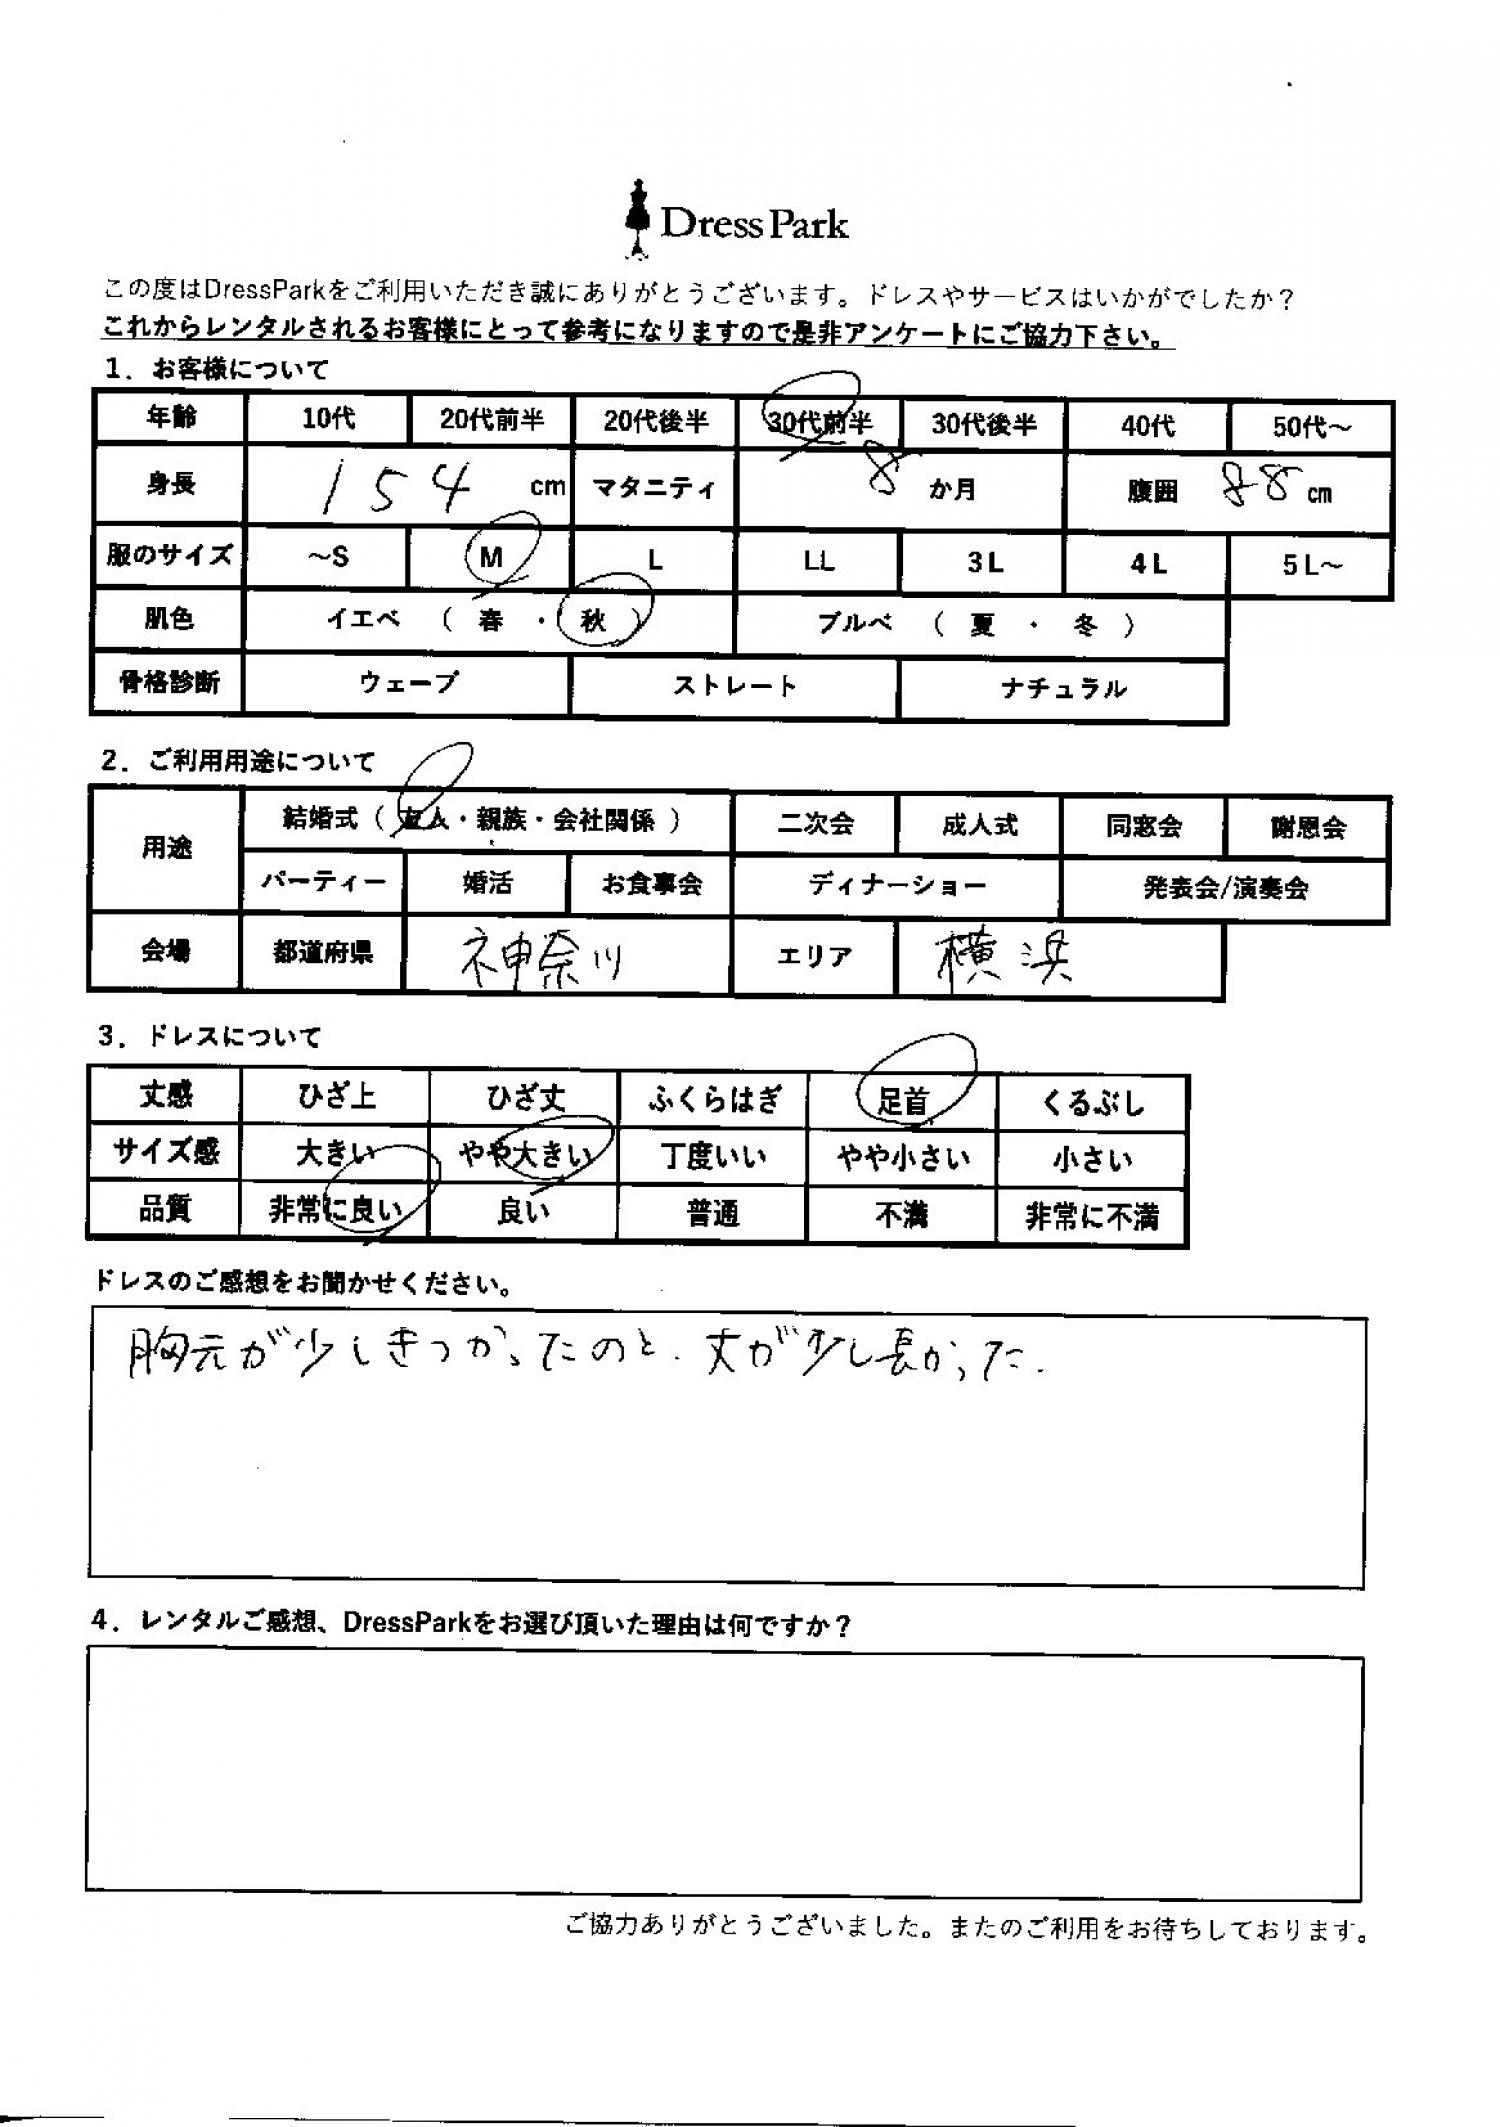 Dress Park
この度はDressParkをご利用いただき誠にありがとうございます。ドレスやサービスはいかがでしたか？
これからレンタルされるお客様にとって参考になりますので是非アンケートにご協力下さい。
1．お客様について
年齢 10代 20代前半 20代後半 30代前半 30代後半 40代 50代～
身長 154 cm マタニティ 8 か月 腹囲 88 cm
服のサイズ ～S M L LL 3L 4L 5L～
肌色 イエベ （ 春 ・ 秋 ） ブルベ （ 夏 ・ 冬 ）
骨格診断 ウェーブ ストレート ナチュラル
2．ご利用用途について
用途 結婚式（ 友人・親族・会社関係 ） 二次会 成人式 同窓会 謝恩会
パーティー 婚活 お食事会 ディナーショー 発表会/演奏会
会場 都道府県 神奈川 エリア 横浜
3．ドレスについて
丈感 ひざ上 ひざ丈 ふくらはぎ 足首 くるぶし
サイズ感 大きい やや大きい 丁度いい やや小さい 小さい
品質 非常に良い 良い 普通 不満 非常に不満
ドレスのご感想をお聞かせください。
胸元が少しきつかったのと、丈が少し長かった.
4．レンタルご感想、DressParkをお選び頂いた理由は何ですか？
ご協力ありがとうございました。またのご利用をお待ちしております。